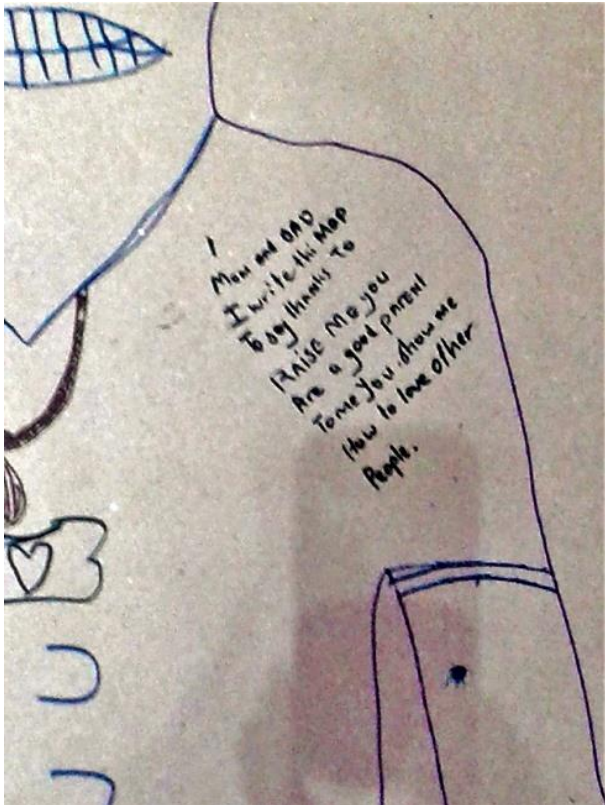 Mom and DAD
I write this Map
To say thanks To
RAISE Me you
Are a good PARENT
To me you show me
How to love other
People.